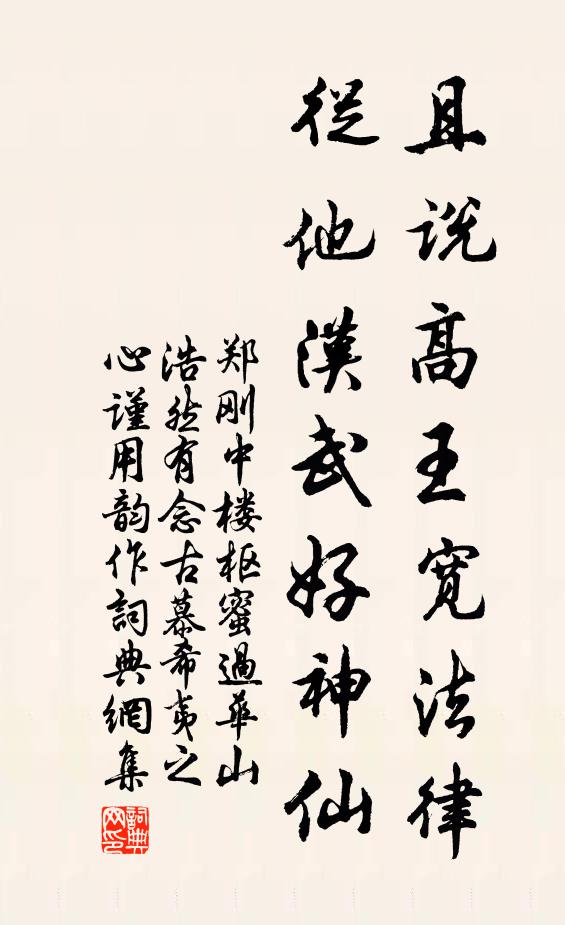 且說高王寬法律
從他漢武好神仙
郑刚中楼枢蜜過華山
浩然有念古慕希夷之
心謹用韵作詞典網集
詞典網印